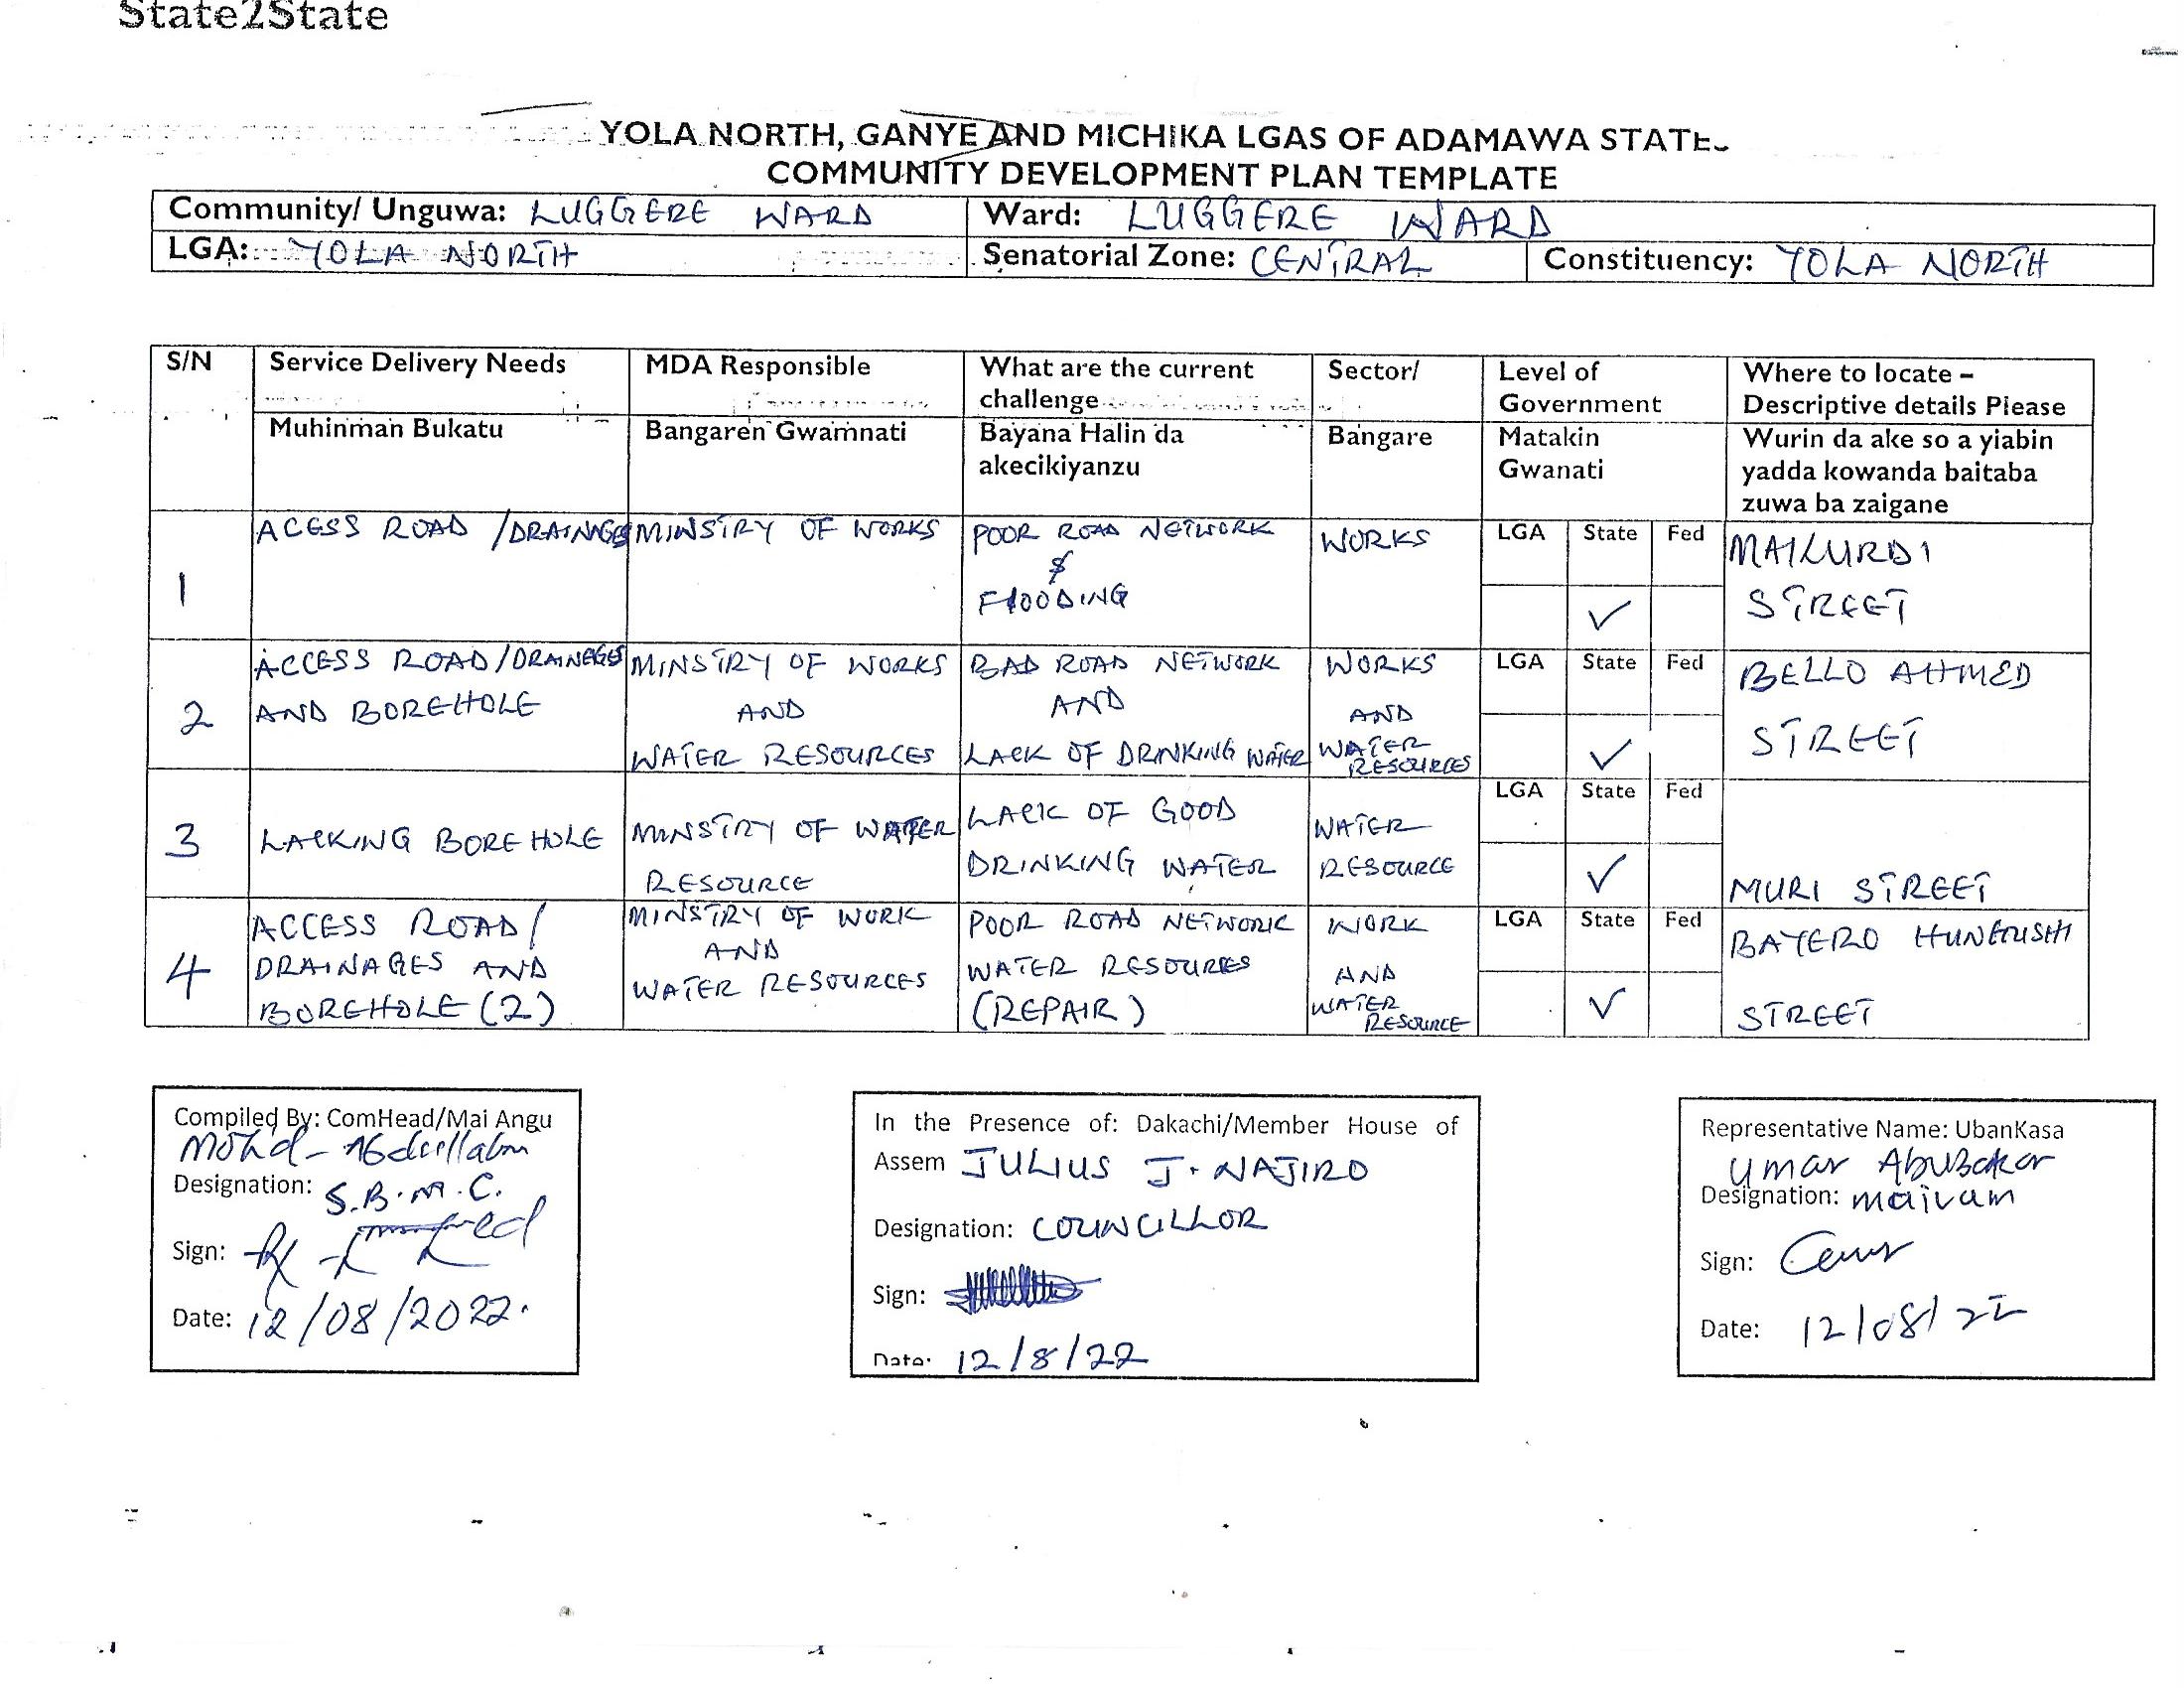 State2State
YOLA NORTH, GANYE AND MICHIKA LGAS OF ADAMAWA STATE
COMMUNITY DEVELOPMENT PLAN TEMPLATE
Community/ Unguwa: LUGGERE WARD Ward: LUGGERE WARD
LGA: YOLA NORTH Senatorial Zone: CENTRAL Constituency: YOLA NORTH
S/N Service Delivery Needs MDA Responsible What are the current challenge Sector/ Level of Government Where to locate – Descriptive details Please
Muhinman Bukatu Bangaren Gwamnati Bayana Halin da akecikiyanzu Bangare Matakin Gwanati Wurin da ake so a yiabin yadda kowanda baitaba zuwa ba zaigane
1 ACESS ROAD /DRAINAGES MINSTRY OF WORKS POOR ROAD NETWORK & FLOODING WORKS LGA State Fed ✓ MAIKURDI STREET
2 ACCESS ROAD/DRAINEGES AND BOREHOLE MINSTRY OF WORKS AND WATER RESOURCES BAD ROAD NETWORK AND LACK OF DRINKING WATER WORKS AND WATER RESOURCES LGA State Fed ✓ BELLO AHMED STREET
3 LACKING BOREHOLE MINSTRY OF WATER RESOURCE LACK OF GOOD DRINKING WATER WATER RESOURCE LGA State Fed ✓ MURI STREET
4 ACCESS ROAD/ DRAINAGES AND BOREHOLE (2) MINSTRY OF WORK AND WATER RESOURCES POOR ROAD NETWORK WATER RESOURES (REPAIR) WORK AND WATER RESOURCE LGA State Fed ✓ BAYERO STREET
Compiled By: ComHead/Mai Angu
Mohd - Abdullahi
Designation: S.B.M.C.
Sign:
Date: 12/08/2022.
In the Presence of: Dakachi/Member House of
Assem JULIUS J. NAJIRO
Designation: COUNCILLOR
Sign:
Date: 12/8/22
Representative Name: UbanKasa
Umar Abubakar
Designation: maivam
Sign:
Date: 12/08/22